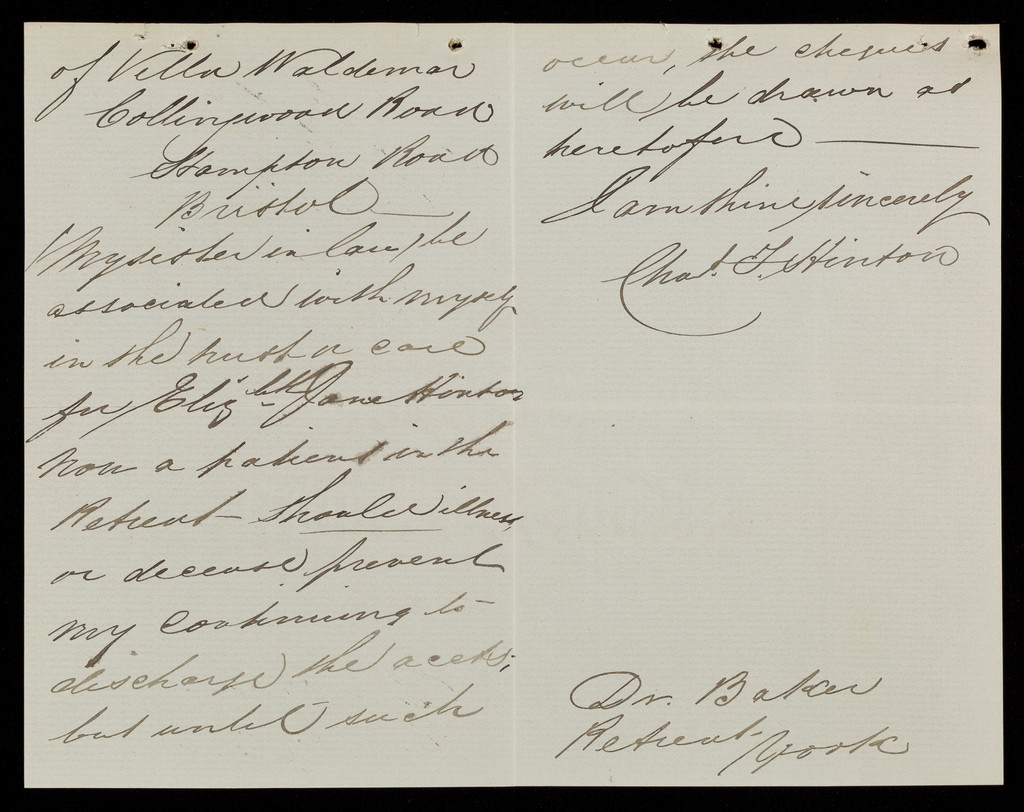 of Villa Waldemar
Collingwood Road
Hampton Road
Bristol —
(My sister in law) be
associated with myself
in the trust or care
for Elizbth Jane Hinton
now a patient in the
Retreat — should illness,
or decease, prevent
my continuing to
discharge the accts;
but until such
occur, the cheques
will be drawn as
heretofore —
I am thine sincerely
Chas. F. Hinton
Dr. Baker
Retreat York